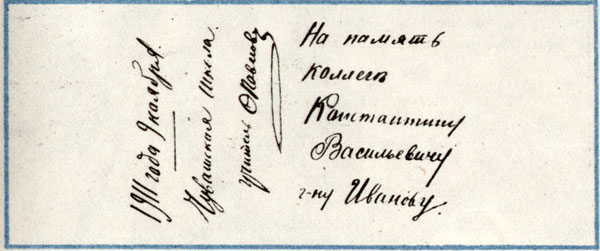 На память
коллегѣ
Константину
Васильевичу
г-ну Иванову.
1911 года 9 ноября.
Чувашская школа.
учитель ѲПавловъ